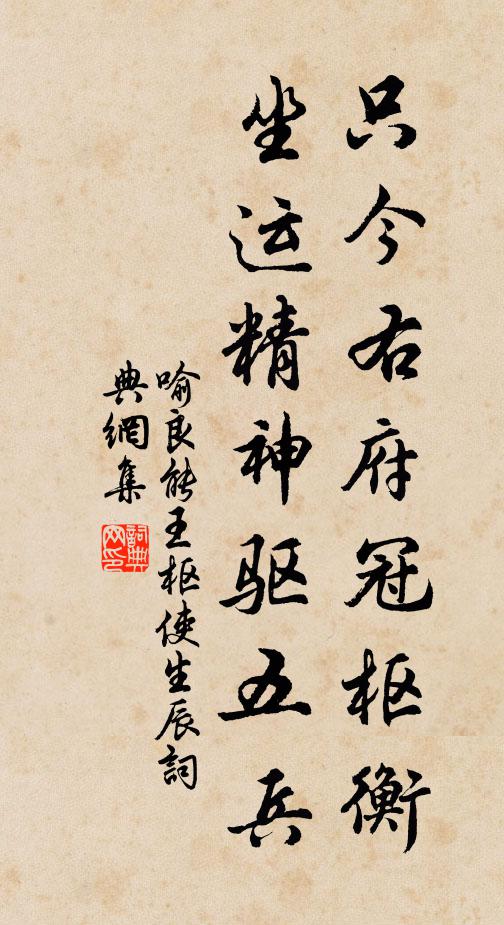 只今右府冠枢衡
坐运精神驱五兵
喻良能王枢使生辰詞
典網集
詞典網印